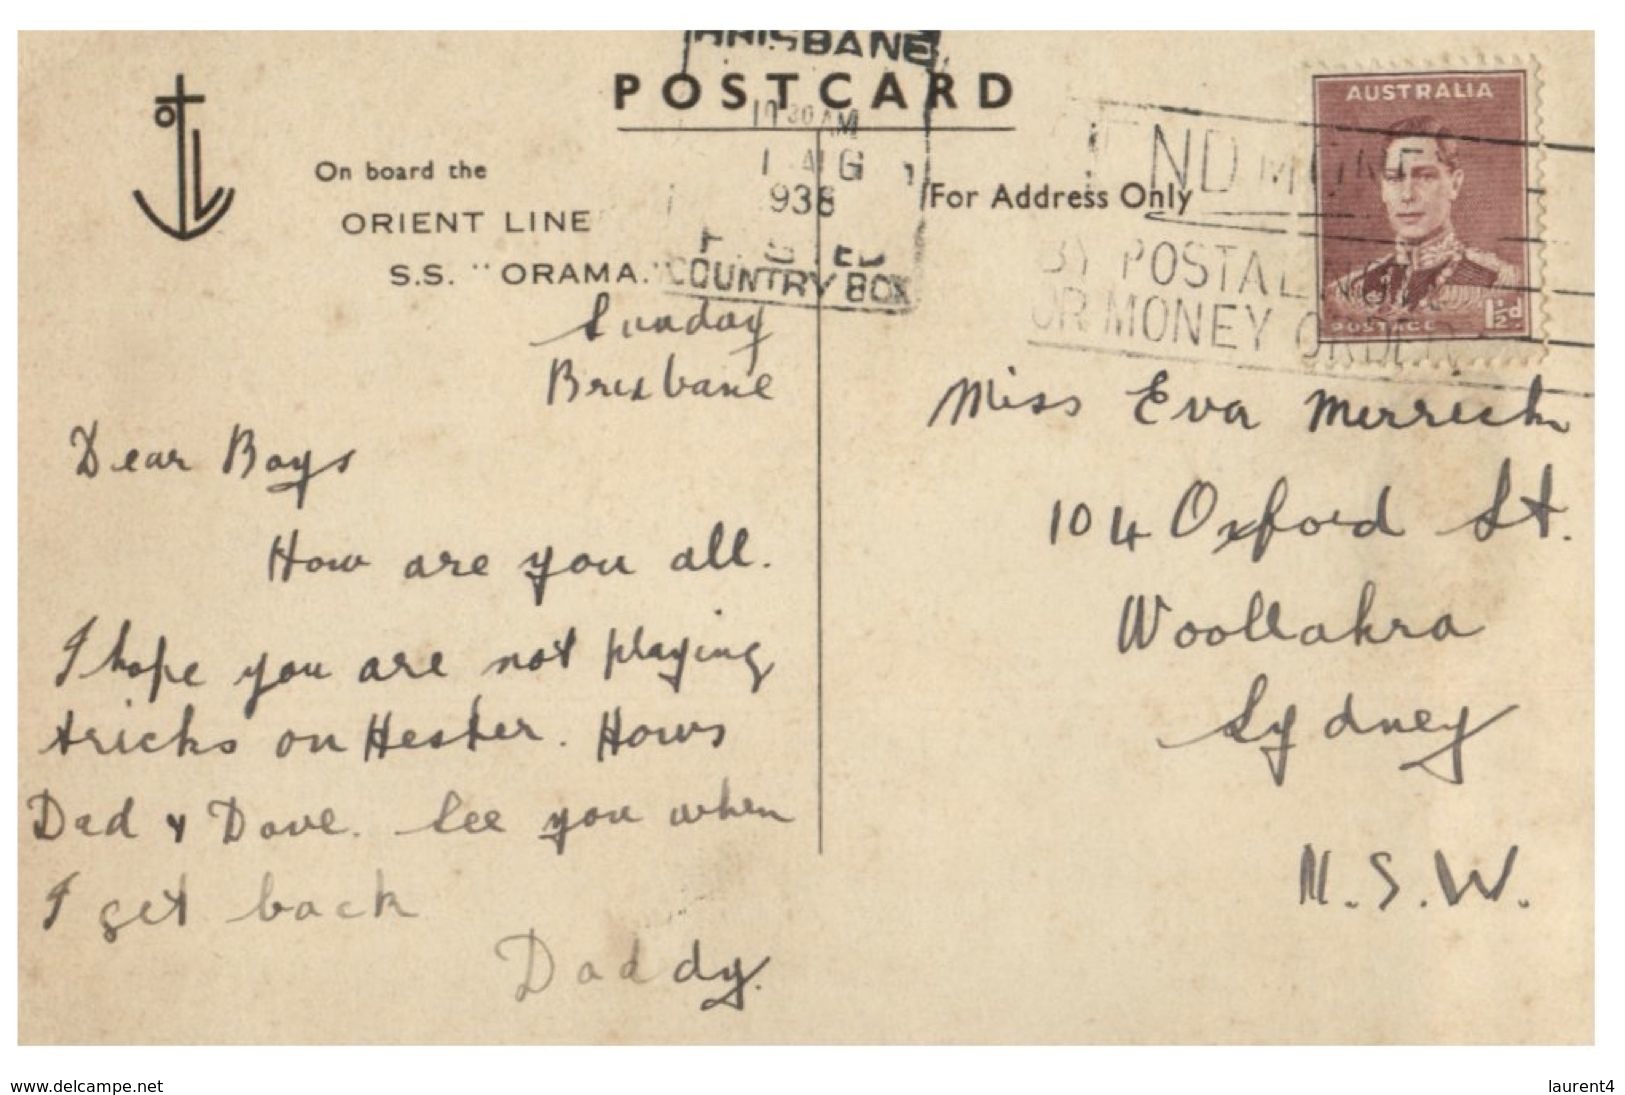 BRISBANE
POSTCARD
10 30 AM
1 AUG
938
COUNTRY BOX
On board the
ORIENT LINE
S.S. "ORAMA."
For Address Only
BY POSTAL
OR MONEY ORDER
AUSTRALIA
POSTAGE 1½d
Sunday
Brisbane
Dear Boys
How are you all.
I hope you are not playing
tricks on Hester. Hows
Dad & Dave. See you when
I get back
Daddy.
Miss Eva Merrick
104 Oxford St.
Woollahra
Sydney
N.S.W.
www.delcampe.net
laurent4